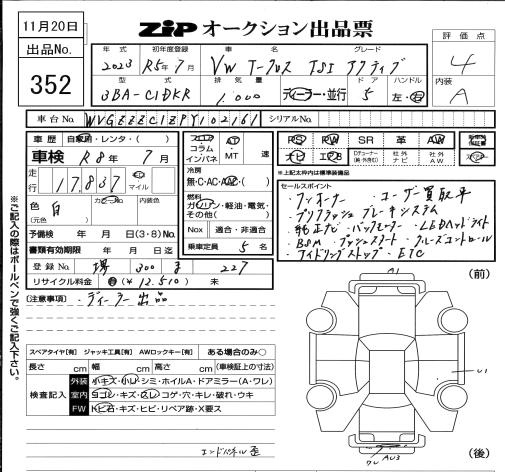 11月20日
ZIP オークション出品票
出品No.
352
評価点
4
内装
A
年式 初年度登録 車名 グレード
2023 R5年7月 VW T-クロス TSI アクティブ
型式 排気量 ドア ハンドル
3BA-C1DKR 1,000 ディーラー・並行 5 左・右
車台No. WVGZZZC1ZPY102161 シリアルNo.
車歴 自家用・レンタ・( )
車検 R8年7月
走行 17,837 km マイル
色 白 カラーNo. 内装色
(元色)
予備検 年 月 日(3・8)No.
書類有効期限 年 月 日迄
登録No. 300 227
リサイクル料金 (¥12,510) 未
フロア コラム インパネ
AT MT 速
冷房
無・C・AC・AAC・( )
燃料
ガソリン・軽油・電気・その他( )
Nox 適合・非適合
乗車定員 5 名
PS PW SR 革 AW 新車時保証書
ナビ エアB 社外ナビ 社外AW
※上記太枠内は標準装備品
セールスポイント
・ワンオーナー ・ユーザー買取車
・プリクラッシュブレーキシステム
・純正ナビ ・バックモニター ・LEDヘッドライト
・BSM ・プッシュスタート ・クルーズコントロール
・アイドリングストップ ・ETC
[注意事項] ・ディーラー出品
スペアタイヤ[有] ジャッキ工具[有] AWロックキー[有] ある場合のみ○
長さ cm 幅 cm 高さ cm (車検証上の寸法)
検査記入
外装 小キズ・小凹・シミ・ホイルA・ドアミラー(A・ワレ)
室内 ヨゴレ・キズ・スレ・コゲ・穴・キレ・破れ・ウキ
FW トビ石・キズ・ヒビ・リペア跡・X要ス
エンドパネル歪
(前)
A1
U1
ワレ AU3
(後)
※ご記入の際はボールペンで強くご記入下さい。